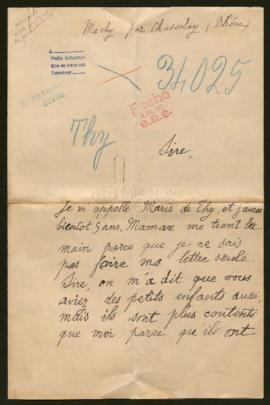 Machy par Chasselay (Rhône)
34025
Fecho
e.a.e.
Thy
Sire,
Je m'appelle Marie de Thy, et j'aurai
bientôt 5 ans. Maman me tient la
main parce que je ne sais
pas faire ma lettre seule.
Sire, on m'a dit que vous
aviez des petits enfants aussi,
mais ils sont plus contents
que moi parce qu'ils ont